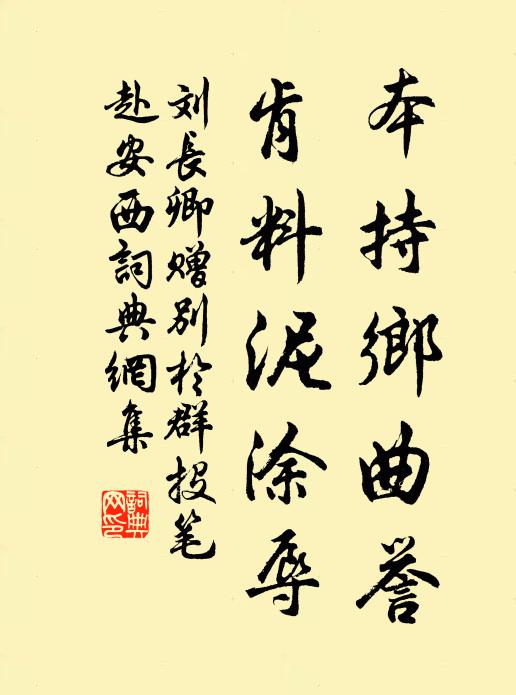 本持鄉曲誉
肯料泥涂辱
刘長卿赠别於群投笔
赴安西詞典網集
詞典网印